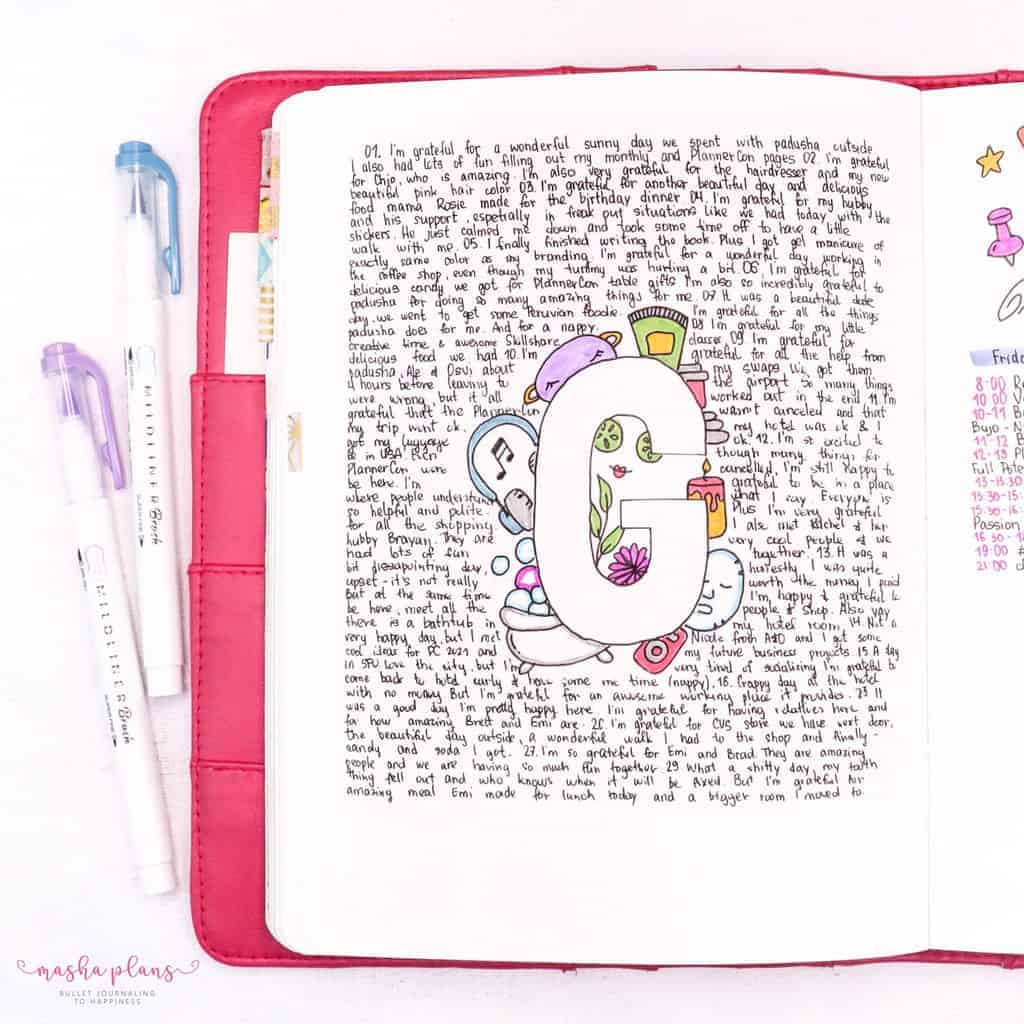 01. I'm grateful for a wonderful sunny day we spent with padusha outside.
I also had lots of fun filling out my monthly and PlannerCon pages 02. I'm grateful
for Chip, who is amazing. I'm also very grateful for the hairdresser and my new
beautiful pink hair color 03. I'm grateful for another beautiful day and delicious
food mama Rosie made for the birthday dinner 04. I'm grateful for my hubby
and his support, espetially in freak out situations like we had today with the
stickers. He just calmed me down and took some time off to have a little
walk with me. 05. I finally finished writing the book. Plus I got gel manicure of
exactly same color as my branding. I'm grateful for a wonderful day working in
the coffee shop, even though my tummy was hurting a bit. 06. I'm grateful for
delicious candy we got for PlannerCon table gifts. I'm also so incredibly grateful to
padusha for doing so many amazing things for me. 07. It was a beautiful date
day, we went to get some Peruvian foodie. I'm grateful for all the things
padusha does for me. And for a nappy. 08 I'm grateful for my little
creative time & awesome Skillshare classes. 09 I'm grateful for
delicious food we had 10. I'm grateful for all the help from
padusha, Ale & Osvi about my swaps. We got them
4 hours before leaving to the airport. So many things
were wrong, but it all worked out in the end 11. I'm
grateful that the PlannerCon wasn't canceled and that
my trip went ok. my hotel was ok & I
got my luggage ok. 12. I'm so excited to
be in USA. Even though many things for
PlannerCon were cancelled, I'm still happy to
be here. I'm grateful to be in a place
where people understand what I say. Everyone is
so helpful and polite. Plus I'm very grateful
for all the shopping I also met Rachel & her
hubby Brayan. They are very cool people & we
had lots of fun together. 13. It was a
bit dissapointing day, honestly. I was quite
upset - it's not really worth the money I paid
But at the same time I'm happy & grateful to
be here, meet all the people & shop. Also yay
there is a bathtub in my hotel room. 14. Not a
very happy day, but I met Nicole from A&O and I got some
cool ideas for PC 2021 and my future business projects 15 A day
in SF. I love the city, but I'm very tired of socializing. I'm grateful to
come back to hotel early & have some me time (nappy). 16. Crappy day at the hotel
with no money. But I'm grateful for an awesome working place it provides. 23 It
was a good day. I'm pretty happy here. I'm grateful for having relatives here and
for how amazing Brett and Emi are. 26. I'm grateful for CVS store we have next door,
the beautiful day outside, a wonderful walk I had to the shop and finally -
candy and soda I got. 27. I'm so grateful for Emi and Brad. They are amazing
people and we are having so much fun together. 29 What a shitty day, my tooth
thing fell out and who knows when it will be fixed. But I'm grateful for
amazing meal Emi made for lunch today and a bigger room I moved to.
G
MILDLINER Brush
MILDLINER Brush
Friday
8:00 Re
10:00
10-11 B
Bujo - N
11-12 B
12-13 Pl
Full Pote
13-13:30
13:30-15
15:30-16:
Passion
16:30-1
19:00
21:00
masha plans
BULLET JOURNALING
TO HAPPINESS